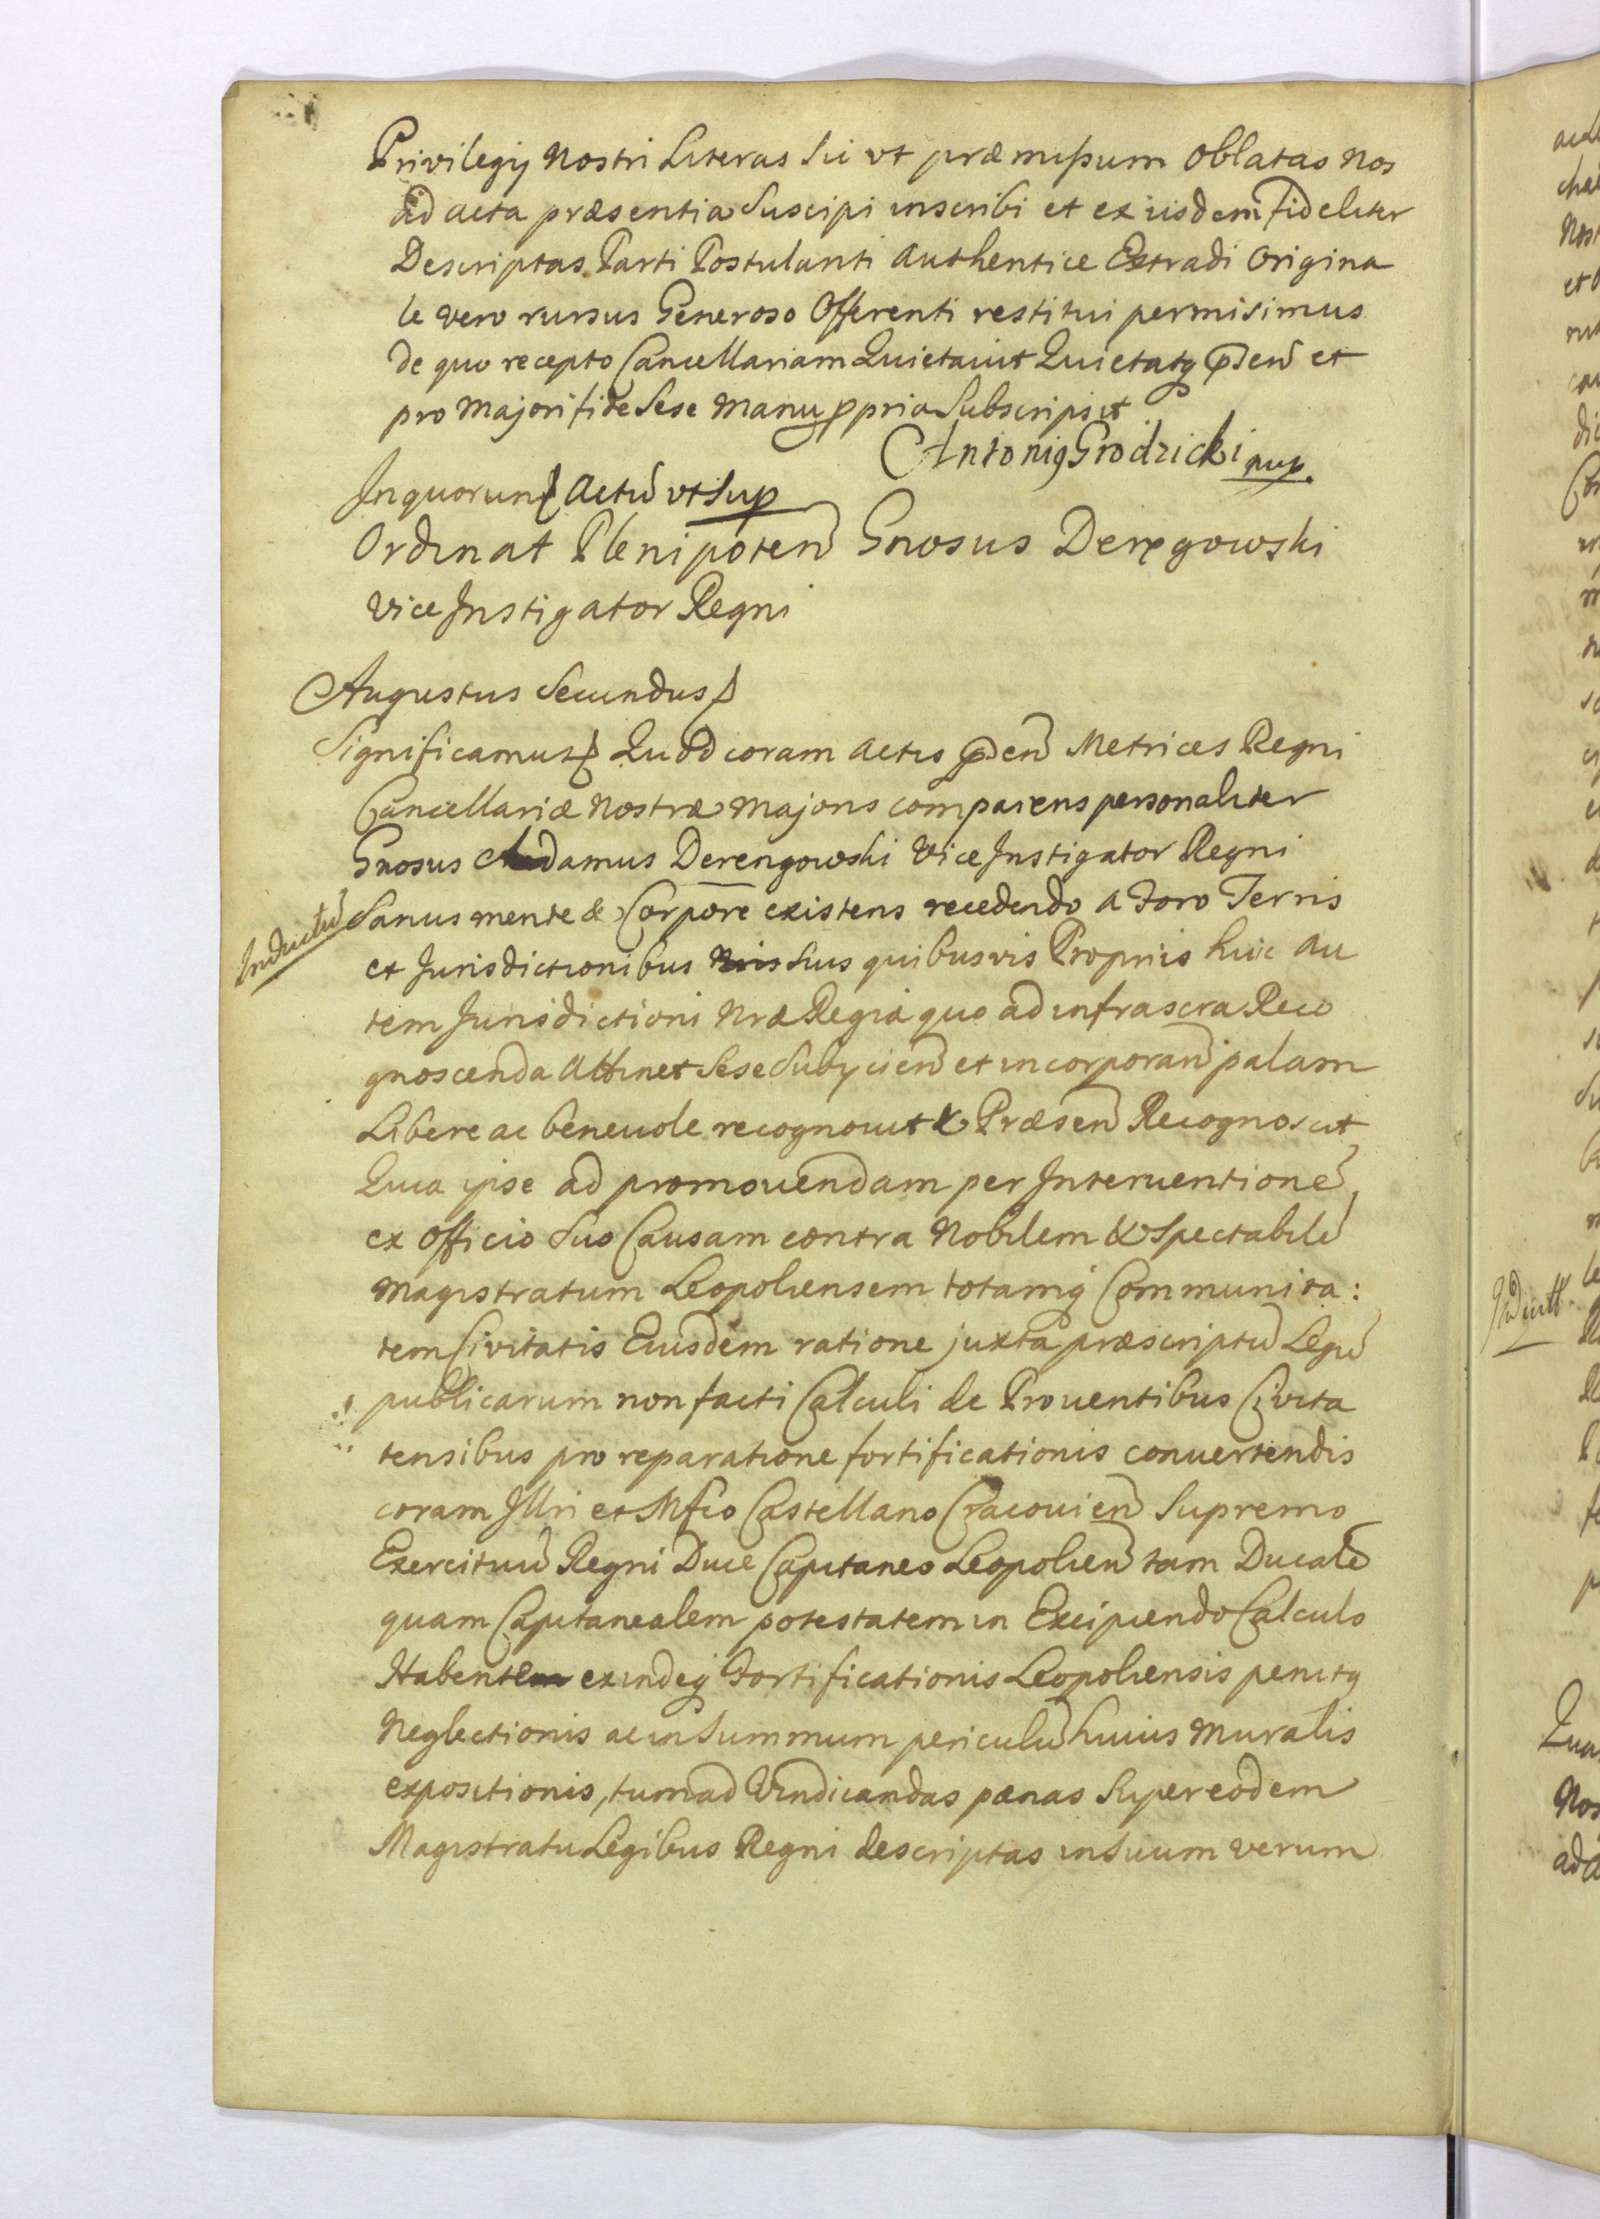 Privilegij Nostri Literas Sui vt præmissum Oblatas Nos
ad acta præsentia Suscipi inscribi et ex iisdem fideliter
Descriptas Parti Postulanti Authentice Extradi Origina
le vero rursus Generoso Offerenti restitui permisimus
de quo recepto Cancellariam Quietauit Quietatq pñseñ et
pro Majori fide Sese Manu ppria Subscripsit
Antonig Grodzicki mpp.
In quorum Actũ vt Sup
Ordinat Plenipoteñ Gnosus Deręgowski
Vice Instigator Regni
Augustus Secundus
Significamus Quod coram Actis pñseñ Metrices Regni
Cancellariæ Nostræ Majoris comparens personaliter
Gnosus Adamus Derengowski Vice Instigator Regni
Inductũ
Sanus mente & Corpore existens recedendo a Foro Terris
et Jurisdictionibus Suis quibusvis Proprijs huic Au
tem Jurisdictioni Nræ Regiæ quo ad infrascra Reco
gnoscenda Attinet Sese Subijcieñ et incorporañ palam
Libere ac beneuole recognouit & Præseñ Recognoscit
Quia ipse ad promouendam per Interuentionẽ
ex Officio Suo Causam contra Nobilem & Spectabilẽ
Magistratum Leopoliensem totamq Communita:
tem Civitatis Eiusdem ratione juxta præscriptũ Legũ
publicarum non facti Calculi de Prouentibus Civita
tensibus pro reparatione fortificationis conuertendis
coram Illri et Mfco Castellano Cracouieñ Supremo
Exercituũ Regni Duce Capitaneo Leopolieñ tam Ducalẽ
quam Capitanealem potestatem in Excipiendo Calculo
Habente exindeq Fortificationis Leopoliensis penitq
Neglectionis ac in Summum periculũ huius Muralis
expositionis, tum ad Vindicandas pœnas Super eodem
Magistratu Legibus Regni descriptas in Suum verum